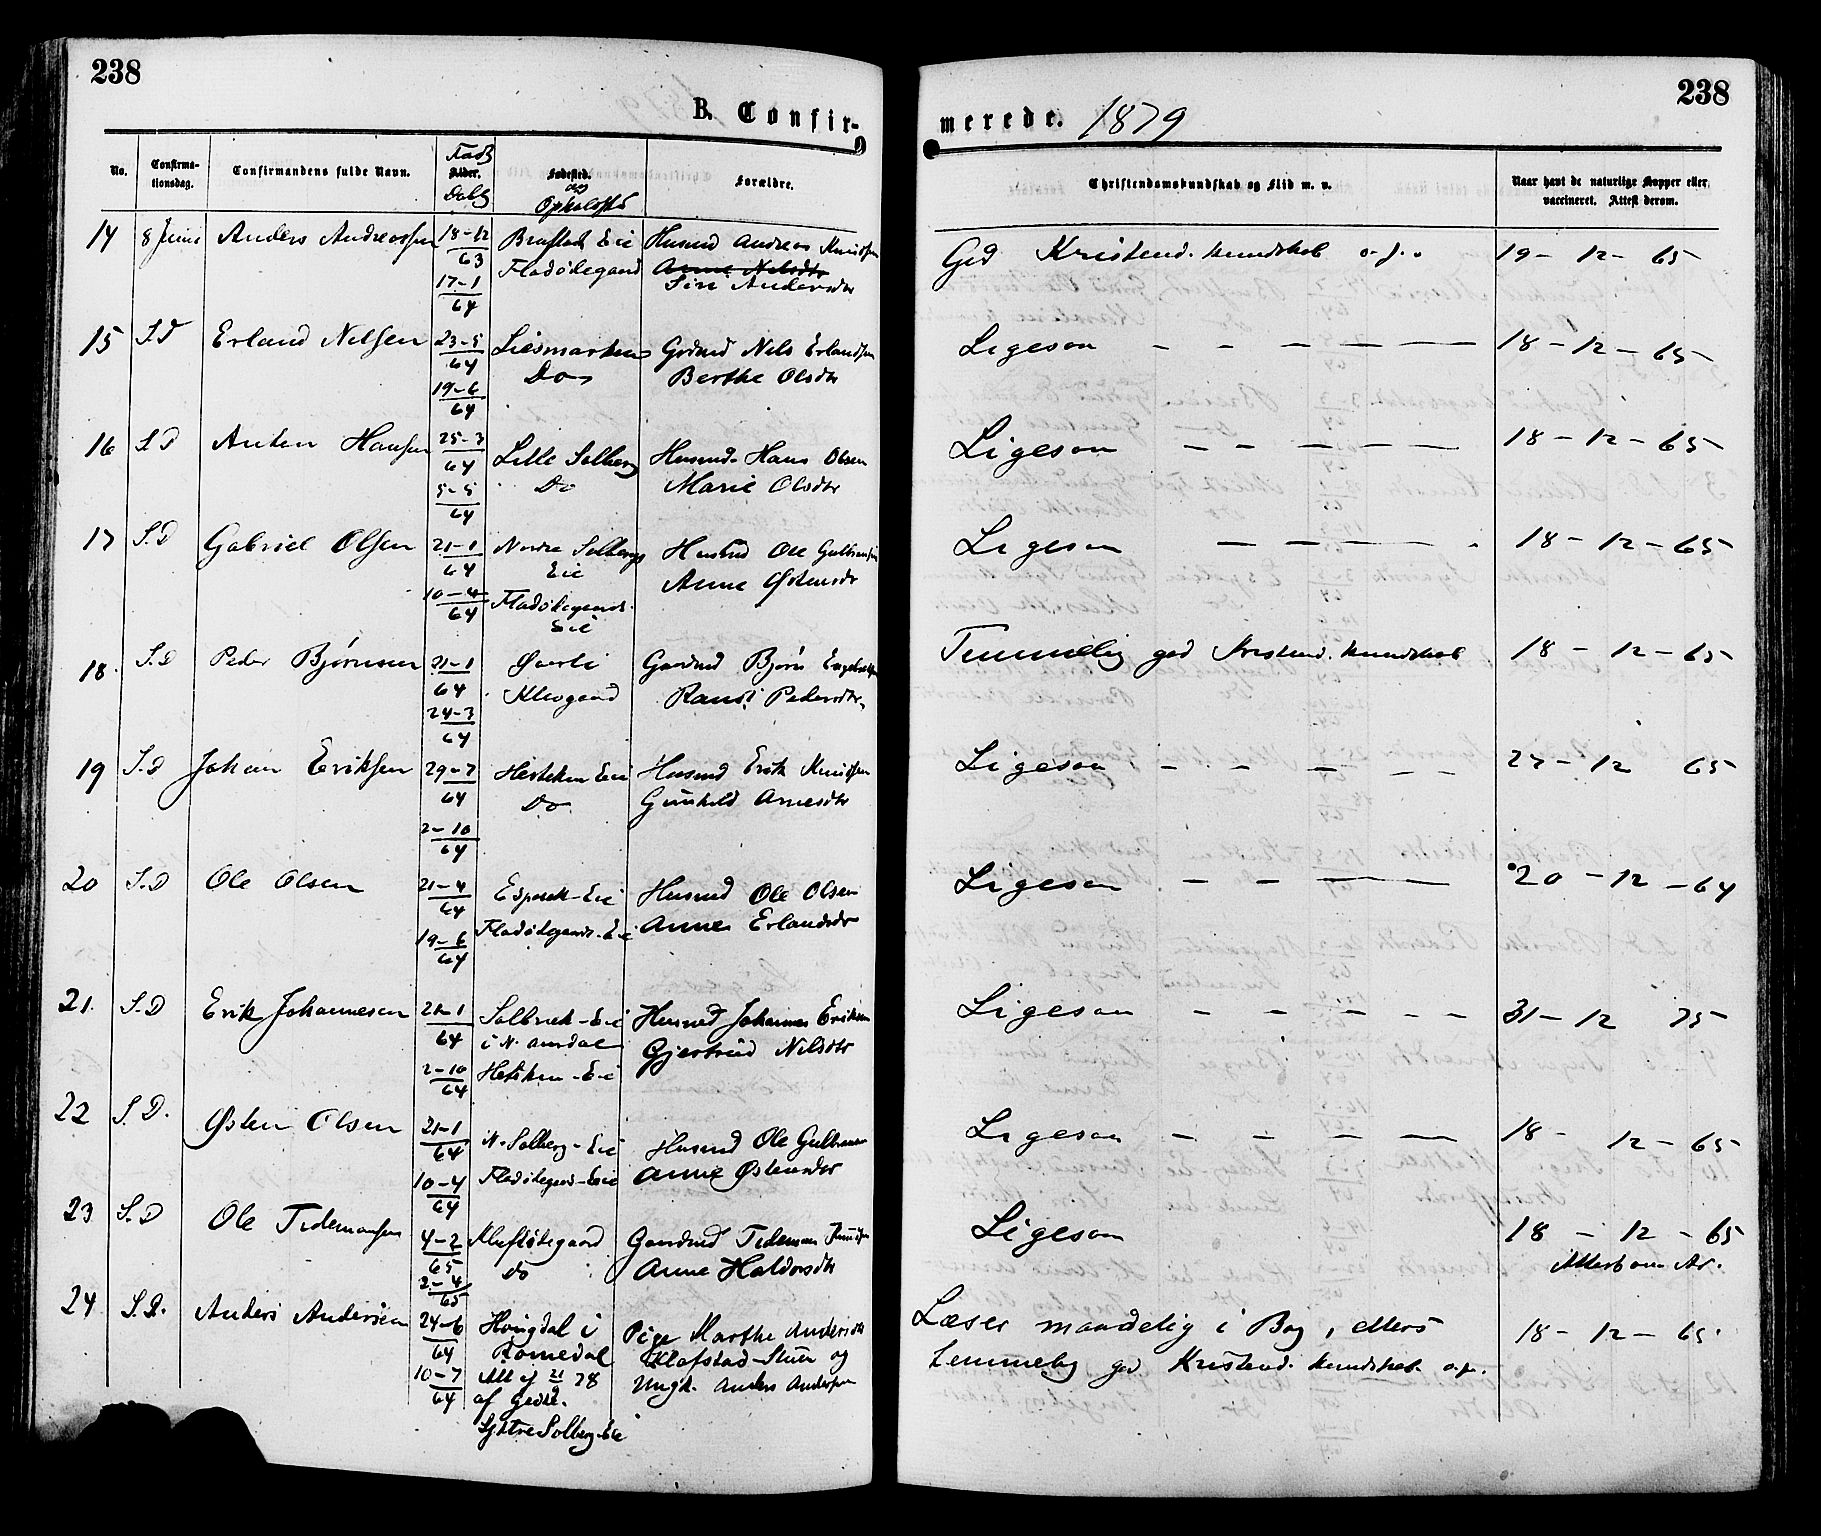 238
238
B. Confir-
merede. 1879
No.
Confirma-
tionsdag.
Confirmandens fulde Navn.
Født
Alder.
Døbt
Fødested.
og
Opholdsted
Forældre.
Christendomskundskab og Flid m. v.
Naar havt de naturlige Kopper eller
vaccineret. Attest derom.
14 8 Juni Anders Andreassen 18-12/63 Brustad Eie Husmd Andreas Knudsen God Kristend. kundskab o.f.. 19 - 12 - 65
Fladølegaard Anne Nilsdtr
17-1/64 Siri Andersdtr
15 S.D Erland Nilsen 23-5/64 Liesmarken Grdmd Nils Erlandsen Ligesaa - - - - - - 18 - 12 - 65
19-6/64 Do Berthe Olsdtr
16 S.D Anton Hansen 25-3/64 Lille Solberg Husmd. Hans Olsen Ligesaa - - - - - 18 - 12 - 65
5-5/64 Do Marie Olsdtr
17 S.D Gabriel Olsen 21-1/64 Nordre Solbergs Husmd Ole Gulbransen Ligesaa - - - - - 18 - 12 - 65
Eie Anne Østensdtr
10-4/64 Fladølegaards.
Eie
18. S.D Peder Bjørnsen 21-1/64 Øverli Gaardmd Bjørn Engebretsen Temmelig god Kristend. kundskab 18 - 12 - 65
24-3/64 Klevgaard Randi Pedersdtr.
19 S.D Johan Eriksen 29-7/64 Hesteken Eie Husmd Erik Knudsen Ligesaa - - - - - - 27 - 12 65
2-10/64 Do Gunhild Arnesdtr
20 S.D Ole Olsen 21-4/64 Espeset-Eie Husmd Ole Olsen Ligesaa - - - - 20 - 12 - 64
19-6/64 Fladølegaards-Eie Anne Erlandsdtr
21. S.D Erik Johannesen 21-1/64 Solbræk-Eie Husmd Johannes Eriksen Ligesaa - - - - - - 31 - 12 75
i N. Aurdal Gjertrud Nilsdtr
2-10/64 Hesteken-Eie
22 S.D. Østen Olsen 21-1/64 N. Solberg-Eie Husmd Ole Gulbransen Ligesaa - - - - 18 - 12 - 65
10-4/64 Fladølegaards-Eie Anne Østensdtr
23 S.D Ole Tidemansen 4-2/65 Kluftødegaard Gaardmd Tideman Knudsen Ligesaa 18 - 12 - 65
2-4/65 Do Anne Haldorsdtr
24 S.D. Anders Andersen 24-6/64 Houigdal i Pige Marthe Andersdtr Læser maadelig i Bog, ellers 18 - 12 - 65
Romedal Klafstad-Stuen og temmelig god Kristend. kundskab. o.f.
10-7/64 Att af 21/9 78 Ungk. Anders Andersen
af Gedde.
Sjttre Solberg-Eie